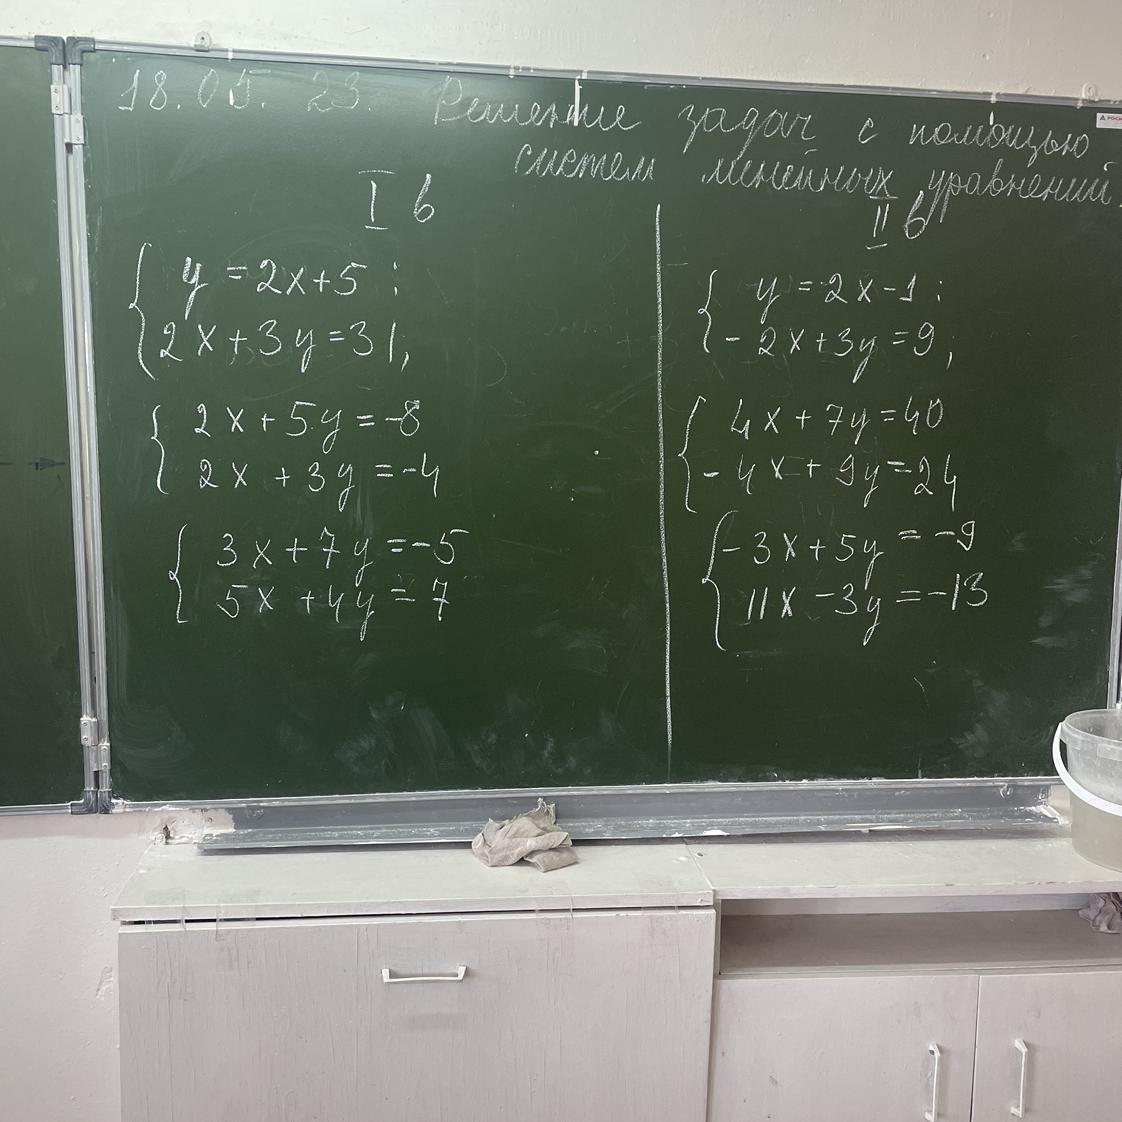 18.05.23. Решение задач с помощью
систем линейных уравнений.
I в
y = 2x+5 ;
2x+3y=31,
2x+5y=-8
2x+3y=-4
3x+7y=-5
5x+4y=7
II в
y=2x-1;
-2x+3y=9,
4x+7y=40
-4x+9y=24
-3x+5y=-9
11x-3y=-13